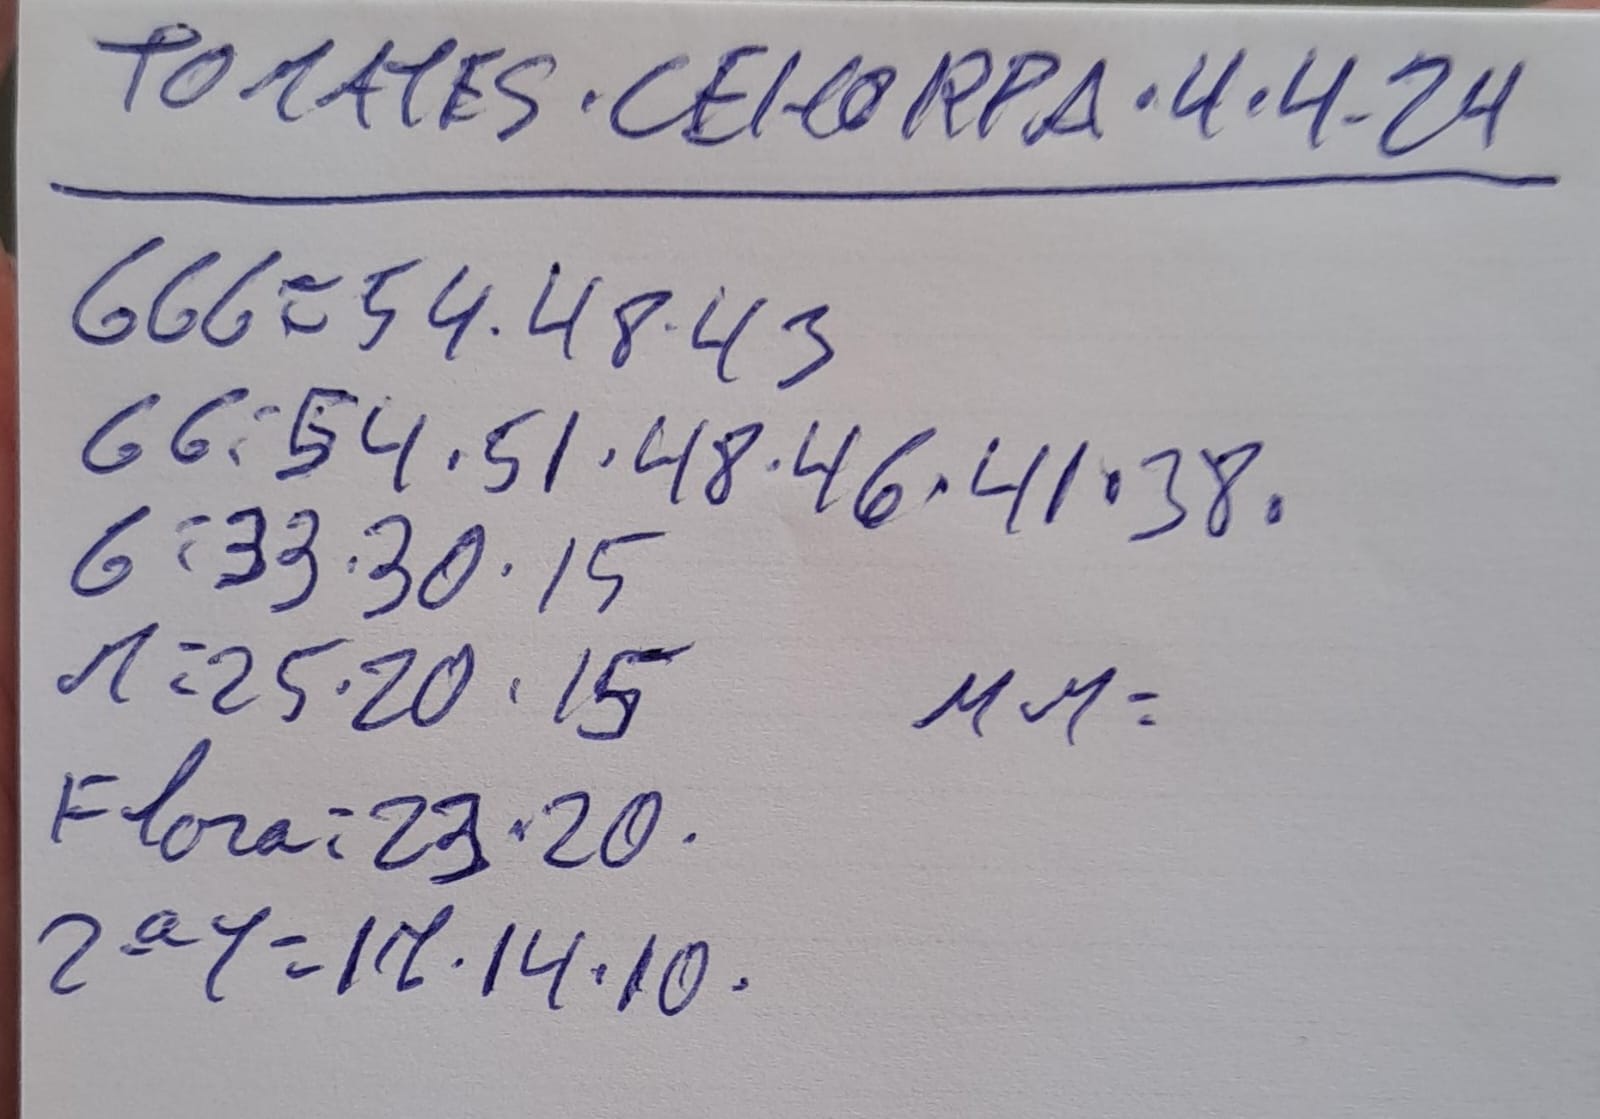 TOMATES · CEHORPA · 4 · 4 - 24
GGG = 54 · 48 · 43
GG = 54 · 51 · 48 · 46 · 41 · 38 .
G = 33 · 30 · 15
M = 25 · 20 · 15 MM =
Flora = 23 · 20 .
2ª Y = 17 · 14 · 10 .